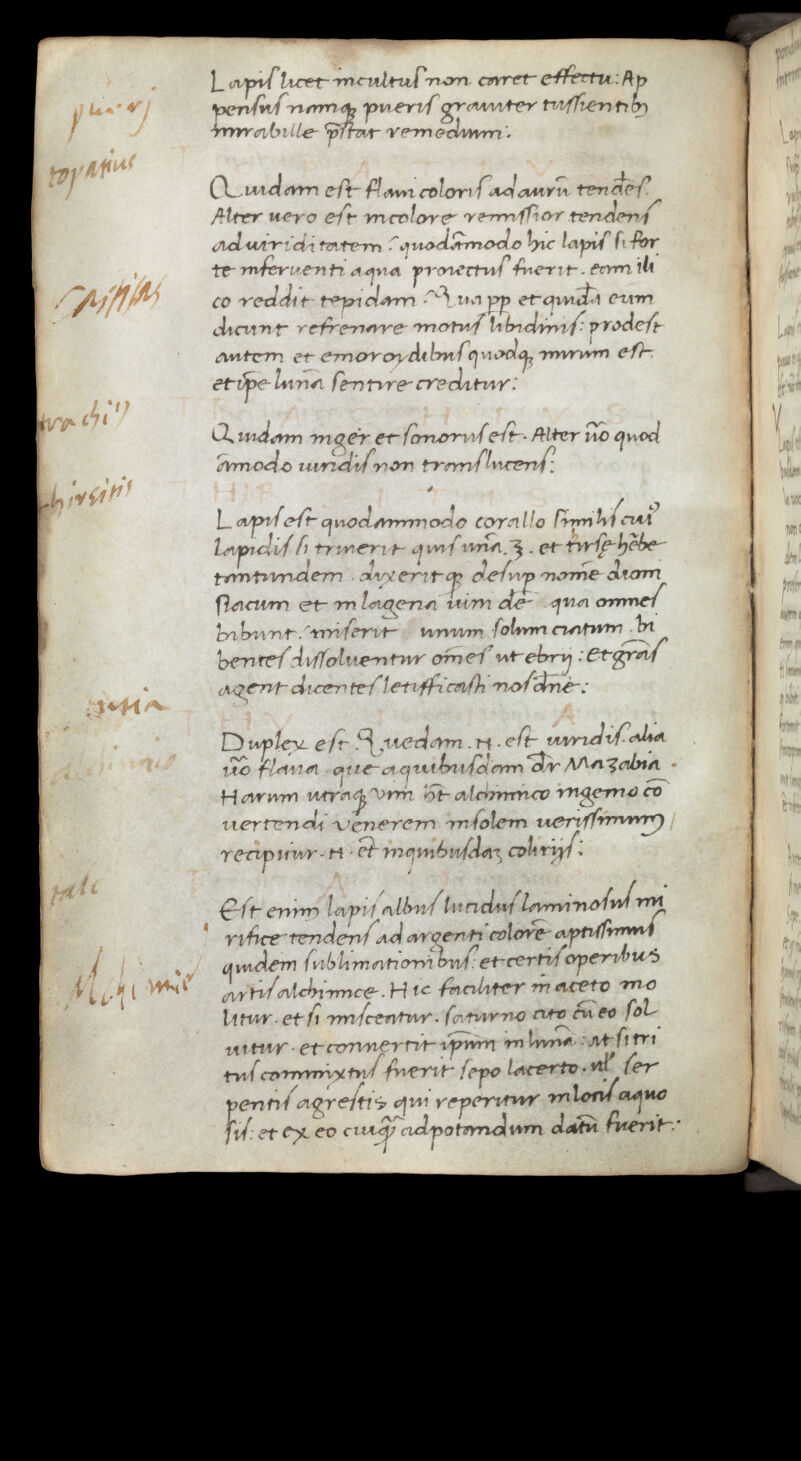 Lapis licet incultus non caret effectu: Ap
pensus namq; pueris grauiter tussientib;
mirabille p̄stat remedium:
puerj
topatius
Quidam est flaui coloris ad aurū tendēs.
Alter uero est incolore remissior tendens
ad uiriditatem: quodāmodo hic lapis si for
te inferuenti aqua proiectus fuerit. eam ili
co reddit tepidam. Qua pp̄ et quidā eum
dicunt refrenare motus libidinis: prodest
autem et emoroydibus quodq; mirum est.
et ip̄e lunā sentire creditur:
Quidam niger et sonorus est. Alter ūo quod
āmodo uiridis non translucens:
Lapis est quodammodo corallo similis cui᾽
lapidis si triuerit quis unā ʒ. et
tantundem dixerit q; desup nomē diom
et in lagena uim dē qua omnes
bibunt: miserit unum solum ciatum bi
bentes dissoluentur om̄es ut ebrij: Et gr̄as
agent dicentes letifficasti nos dn̄e:
Duplex est. Quedam .n. est uiridis. alia
ūo flaua que a quibusdam dr̄ Mazabia.
Harum utraq; uim h̄t alchimico ingenio cō
uertendi venerem in solem uerissimum
recipitur .n. et̄ in quibusdaʒ colirijs:
talc
Est enim lapis albus lucidus laminosus mi
rifice tendens ad argenti colorē aptissimus
quidem sublimationibus: et certis operibus
artis alchimice. Hic faciliter in aceto mo
litur. et si misceatur. saturno cito cū eo sol
uitur. et conuertit ip̄um in lunā: at si tri
tus commixtus fuerit sepo lacerto. ul̄ ser
pentis agrestis qui reperitur in locis aquo
sis: et ex eo cuiq̄ ad potandum datū fuerit:
Alchimie